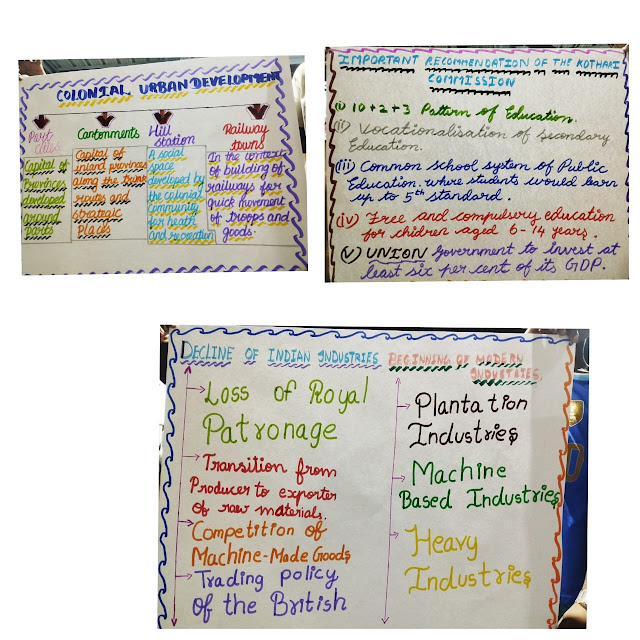 COLONIAL URBAN DEVELOPMENT
Port
cities
Capital of
Provinces
developed
around
Ports
Cantonments
Capital of
inland provinces
along the trunk
routes and
strategic
Places
Hill
station
A social
space
developed by
the colonial
community
for heath
and recreation
Railway
towns
In the context
of building of
railways for
quick movement
of troops and
goods.
IMPORTANT RECOMMENDATION OF THE KOTHARI
COMMISSION
(i) 10+2+3 Pattern of Education.
(ii) Vocationalisation of Secondary
Education.
(iii) Common school system of Public
Education, where students would learn
up to 5th standard.
(iv) Free and compulsery education
for chidren aged 6-14 years.
(v) UNION Government to invest at
least six per cent of its GDP.
DECLINE OF INDIAN INDUSTRIES
Loss of Royal
Patronage
Transition from
Producer to exporter
of raw materials.
Competition of
Machine-Made Goods
Trading policy
of the British
BEGINNING OF MODERN
INDUSTRIES
Plantation
Industries
Machine
Based Industries
Heavy
Industries